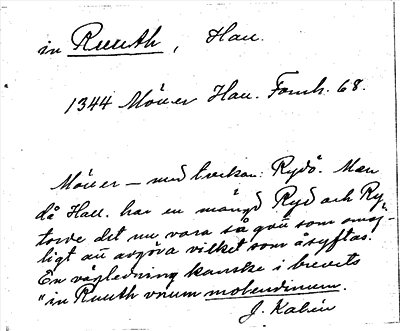 in Ruuth, Hall.
1344 Möller Hall. Fornh. 68.
Möller – med tvekan: Rydö. Man
då Hall. har en mängd Ryd och Ry-
torde det nu vara så gott som omöj-
ligt att avgöra vilket som åsyftas.
En vägledning kanske i brevets
"in Ruuth unum molendinum.
J. Kalén